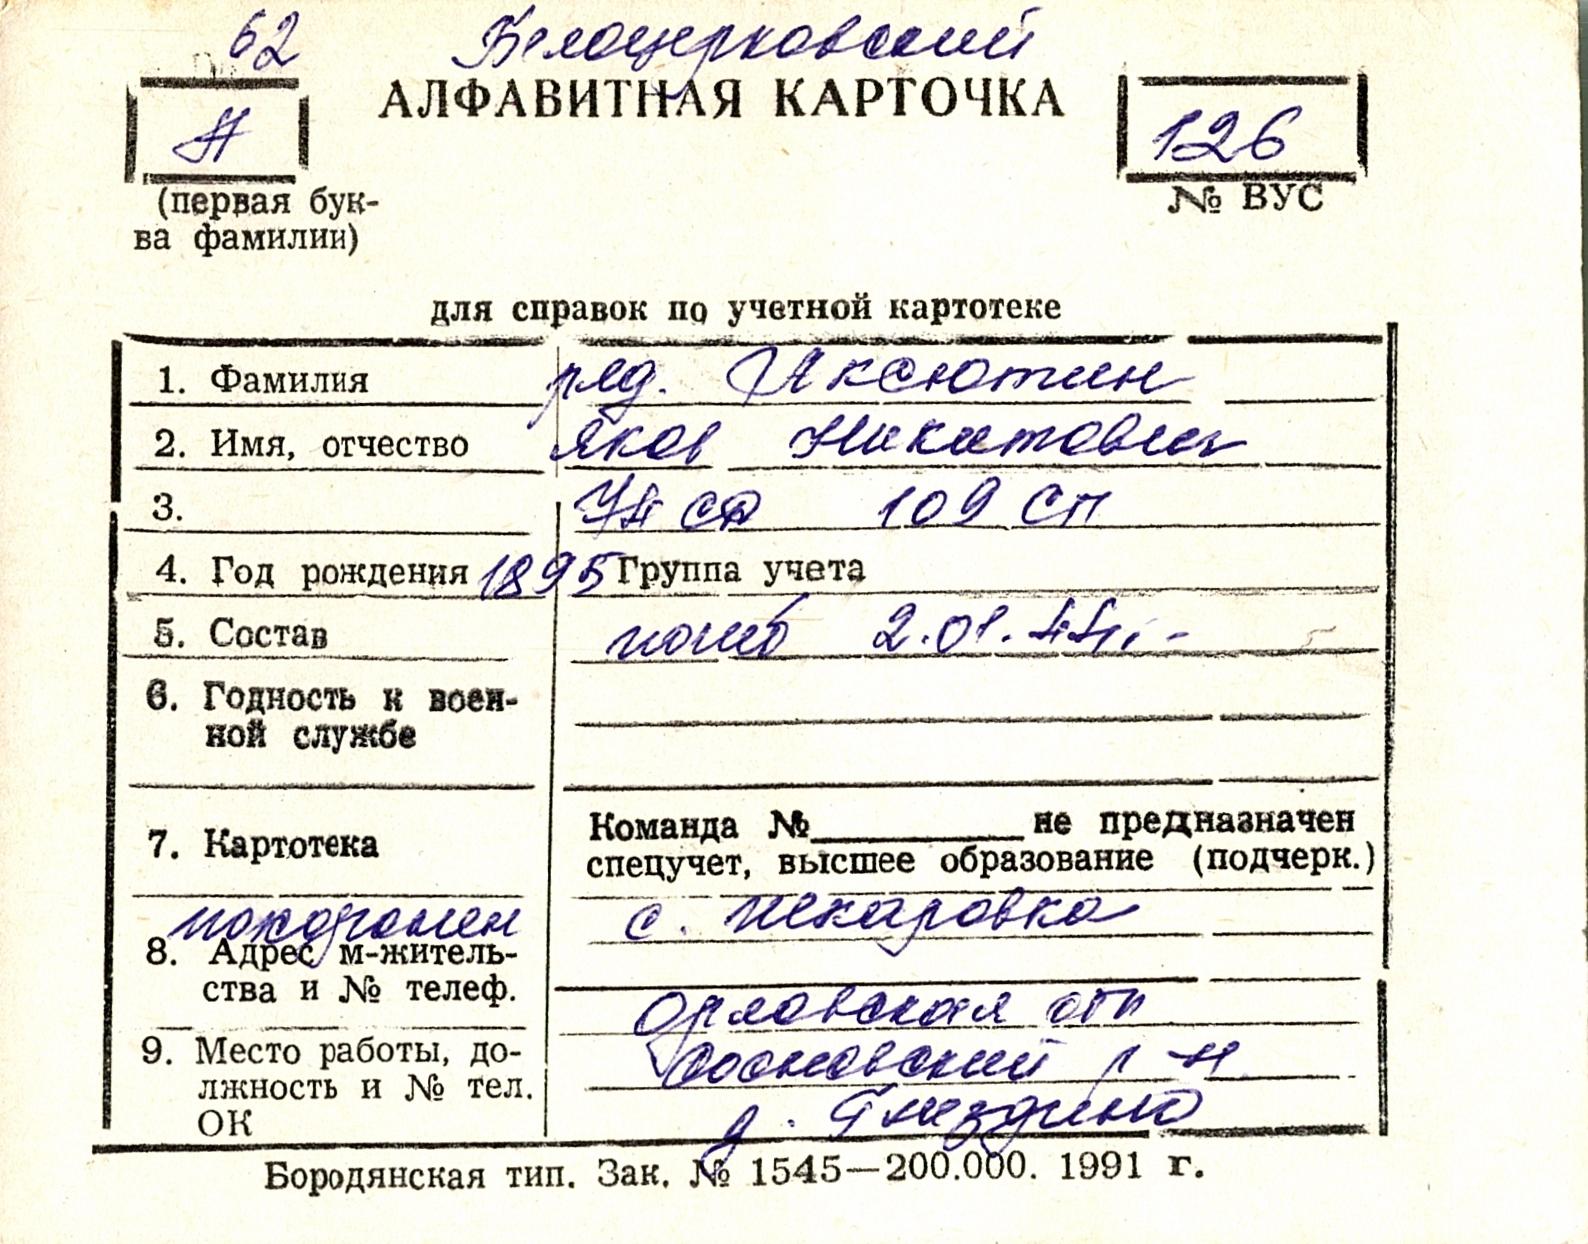 62 Белоцерковский
АЛФАВИТНАЯ КАРТОЧКА
А
126
(первая бук-
ва фамилии)
№ ВУС
для справок по учетной картотеке
1. Фамилия ряд. Аксютин
2. Имя, отчество Яков Никитович
3. 74 сд 109 сп
4. Год рождения 1895 Группа учета
5. Состав погиб 2.01.44г.
6. Годность к воен-
ной службе
7. Картотека
Команда № не предназначен
спецучет, высшее образование (подчерк.)
похоронен с. Пекаровка
8. Адрес м-житель-
ства и № телеф.
Орловская обл
9. Место работы, до-
лжность и № тел.
ОК
Сосновский р-н
д. Гнездино
Бородянская тип. Зак. № 1545—200.000. 1991 г.